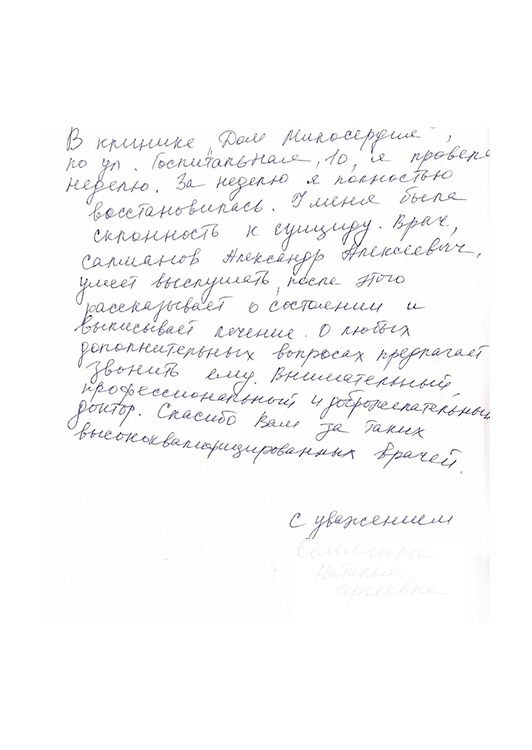 В клинике „Дом Милосердия",
по ул. Госпитальная, 10, я провела
неделю. За неделю я полностью
восстановилась. У меня была
склонность к суициду. Врач,
Салманов Александр Алексеевич,
умеет выслушать, после этого
рассказывает о состоянии и
выписывает лечение. О любых
дополнительных вопросах предлагает
звонить ему. Внимательный,
профессиональный и доброжелательный
доктор. Спасибо Вам за таких
высококвалифицированных врачей.
С уважением
Наталья
Сергеевна